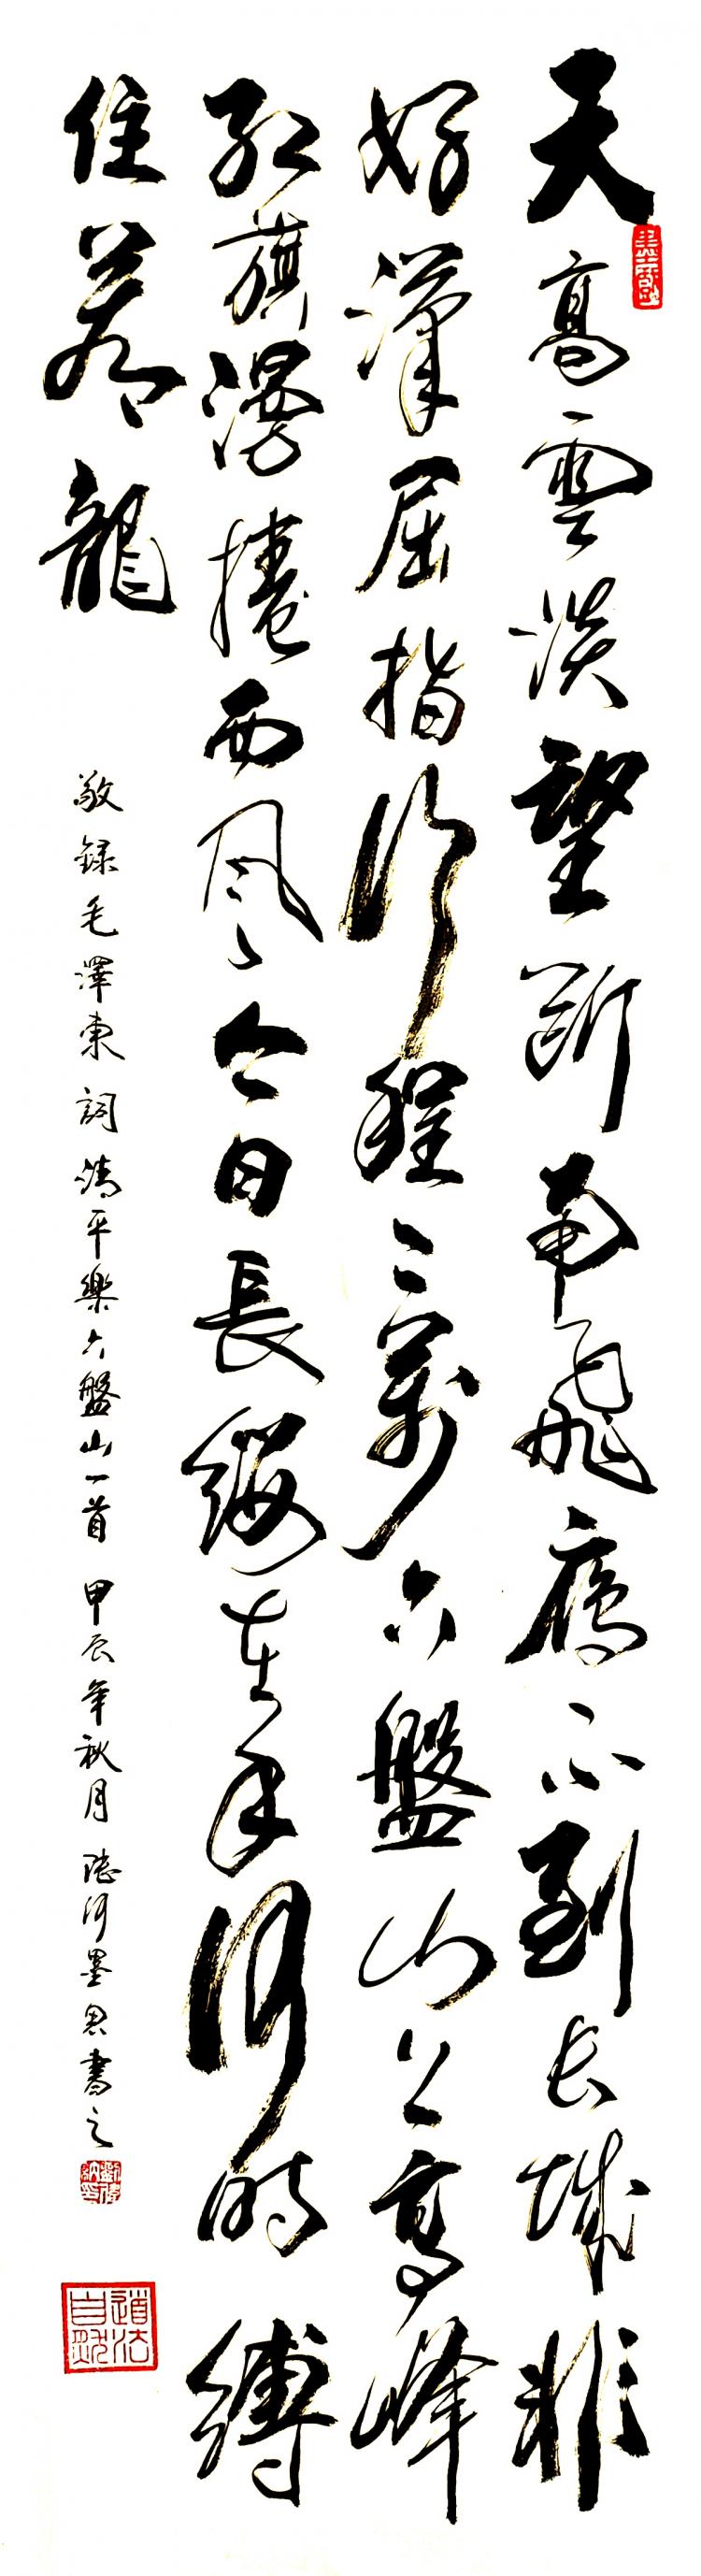 天高雲淡望斷南飛鴈不到长城非
好漢屈指行程二萬六盤山上高峰
紅旗漫捲西风今日長纓在手何时縛
住蒼龍
敬録毛澤東詞清平樂六盤山一首 甲辰年秋月 河墨書之
道法自然